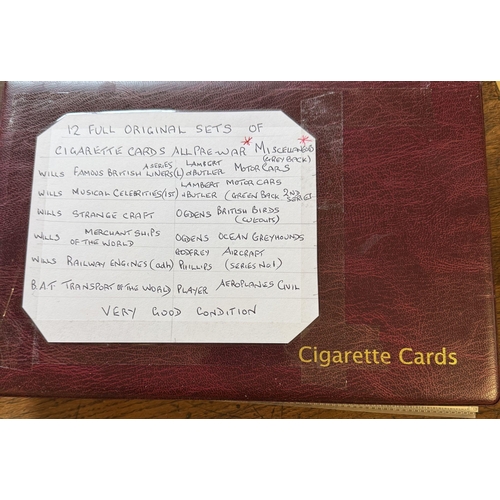 12 FULL ORIGINAL SETS OF
CIGARETTE CARDS ALL PRE-WAR * MISCELLANEOUS *
WILLS FAMOUS BRITISH LINERS (A SERIES) (L) LAMBERT & BUTLER MOTOR CARS (GREY BACK)
WILLS MUSICAL CELEBRITIES (1ST) LAMBERT & BUTLER MOTOR CARS (GREEN BACK 2ND SERIES)
WILLS STRANGE CRAFT OGDENS BRITISH BIRDS (CUTOUTS)
WILLS MERCHANT SHIPS OF THE WORLD OGDENS OCEAN GREYHOUNDS
WILLS RAILWAY ENGINES (adh) GODFREY PHILLIPS AIRCRAFT (SERIES NO 1)
B.A.T TRANSPORT OF THE WORLD PLAYER AEROPLANES CIVIL
VERY GOOD CONDITION
Cigarette Cards